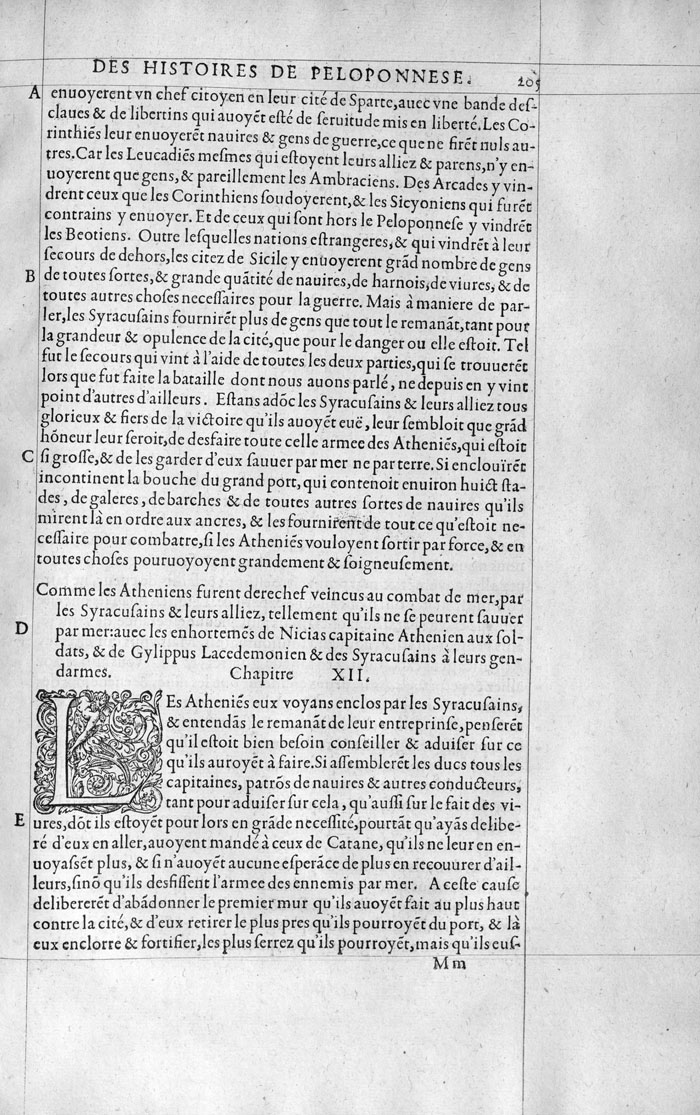 DES HISTOIRES DE PELOPONNESE. 205
A enuoyerent vn chef citoyen en leur cité de Sparte,auec vne bande deſ-
claues & de libertins qui auoyẽt eſté de ſeruitude mis en liberté.Les Co-
rinthiẽs leur enuoyerẽt nauires & gens de guerre,ce que ne firẽt nuls au-
tres.Car les Leucadiẽs meſmes qui eſtoyent leurs alliez & parens,n'y en-
uoyerent que gens,& pareillement les Ambraciens. Des Arcades y vin-
drent ceux que les Corinthiens ſoudoyerent,& les Sicyoniens qui furẽt
contrains y enuoyer. Et de ceux qui ſont hors le Peloponneſe y vindrẽt
les Beotiens. Outre leſquelles nations eſtrangeres,& qui vindrẽt à leur
ſecours de dehors,les citez de Sicile y enuoyerent grãd nombre de gens
B de toutes ſortes,& grande quãtité de nauires,de harnois,de viures,& de
toutes autres choſes neceſſaires pour la guerre. Mais à maniere de par-
ler,les Syracuſains fournirẽt plus de gens que tout le remanãt,tant pour
la grandeur & opulence de la cité,que pour le danger ou elle eſtoit. Tel
fut le ſecours qui vint à l'aide de toutes les deux parties,qui ſe trouuerẽt
lors que fut faite la bataille dont nous auons parlé, ne depuis en y vint
point d'autres d'ailleurs. Eſtans adõc les Syracuſains & leurs alliez tous
glorieux & fiers de la victoire qu'ils auoyẽt euë, leur ſembloit que grãd
hõneur leur ſeroit,de desfaire toute celle armee des Atheniẽs,qui eſtoit
C ſi groſſe,& de les garder d'eux ſauuer par mer ne par terre.Si enclouïrẽt
incontinent la bouche du grand port, qui contenoit enuiron huict ſta-
des, de galeres, de barches & de toutes autres ſortes de nauires qu'ils
mirent là en ordre aux ancres, & les fournirent de tout ce qu'eſtoit ne-
ceſſaire pour combatre,ſi les Atheniẽs vouloyent ſortir par force,& en
toutes choſes pouruoyoyent grandement & ſoigneuſement.
Comme les Atheniens furent derechef veincus au combat de mer,par
les Syracuſains & leurs alliez, tellement qu'ils ne ſe peurent ſauuer
D par mer:auec les enhortemẽs de Nicias capitaine Athenien aux ſol-
dats, & de Gylippus Lacedemonien & des Syracuſains à leurs gen-
darmes. Chapitre XII.
LEs Atheniẽs eux voyans enclos par les Syracuſains,
& entendãs le remanãt de leur entreprinſe,penſerẽt
qu'il eſtoit bien beſoin conſeiller & aduiſer ſur ce
qu'ils auroyẽt à faire.Si aſſemblerẽt les ducs tous les
capitaines, patrõs de nauires & autres conducteurs,
tant pour aduiſer ſur cela, qu'auſſi ſur le fait des vi-
E ures,dõt ils eſtoyẽt pour lors en grãde neceſſité,pourtãt qu'ayãs delibe-
ré d'eux en aller,auoyent mandé à ceux de Catane, qu'ils ne leur en en-
uoyaſſẽt plus, & ſi n'auoyẽt aucune eſperãce de plus en recouurer d'ail-
leurs,ſinõ qu'ils desfiſſent l'armee des ennemis par mer. A ceſte cauſe
delibererẽt d'abãdonner le premier mur qu'ils auoyẽt fait au plus haut
contre la cité,& d'eux retirer le plus pres qu'ils pourroyẽt du port, & là
eux enclorre & fortifier,les plus ſerrez qu'ils pourroyẽt,mais qu'ils euſ-
M m